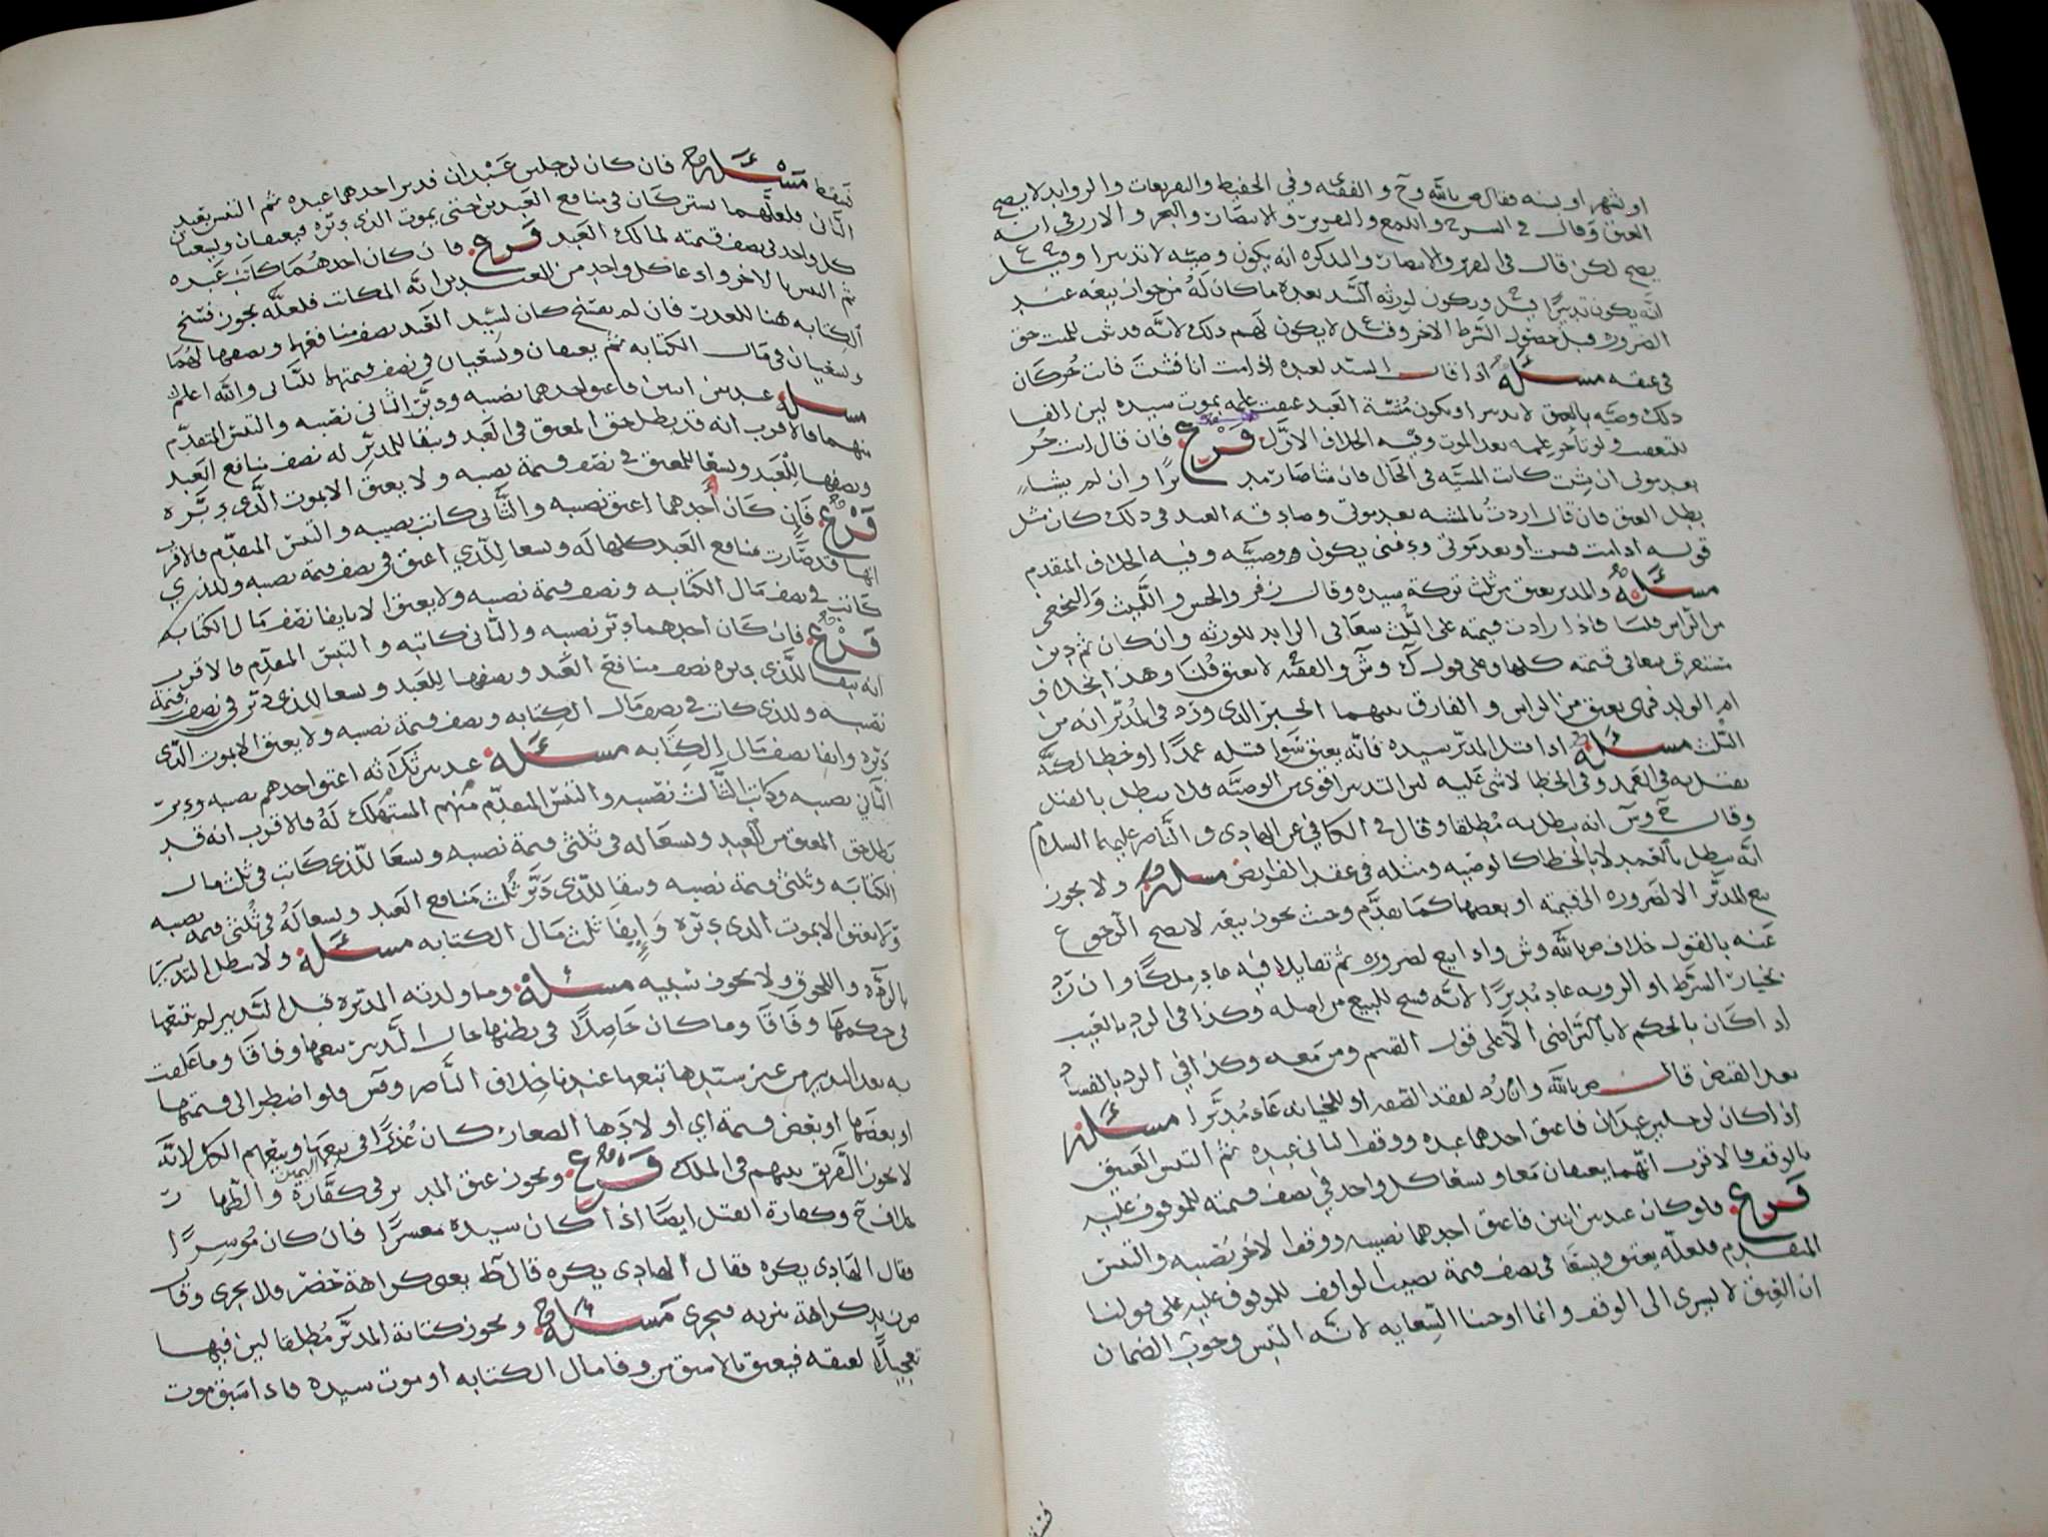 او شهر او سنه فقال ص بالله وح والفقيه وفي الحفيظ والتفريعات والروايد لا يصح
العتق وقال في الشرح واللمع والتقرير والانتصار والبحر والازرقي انه
يصح لكن قال في التقرير والانتصار والتذكره انه يكون وصيه لا تدبيرا وقيل ع
انه يكون تدبيرًا قيل ويكون لورثه السيد بعده ما كان له من جواز بيعه عند
الضروره قبل حصول الشرط الاخر وقيل لا يكون لهم ذلك لانه قد ثبت للميت حق
في عتقه مسئلة اذا قال السيد لعبده اذا مت انا فشئت فانت حر كان
ذلك وصيه بالعتق لا تدبيرا ويكون مشيئة العبد عقيب علمه بموت سيده لين الفا
للتعقيب ولو تأخر علمه بعد الموت وفيه الخلاف الاول فرع فان قال انت حر
بعد موتي ان شئت كانت المشيه في الحال فان شا صار مدبرًا وان لم يشاء
بطل العتق فان قال اردت بالمشيه بعد موتي وصادقه العبد في ذلك كان مثل
قوله اذا مت فشئت او بعد موتي ودفني يكون وصيه وفيه الخلاف المتقدم
مسئلة والمدبر يعتق من ثلث تركة سيده وقال زفر والحسن والليث والنخعي
من الراس قلنا فاذا زادت قيمته على الثلث سعا في الزايد للورثه وان كان ثم دين
مستغرق سعا في قيمته كلها وعلى قول ك وش والفقيه لا يعتق قلنا وهذا بخلاف
ام الولد فهي يعتق من الراس والفارق بينهما الخبر الذي ورد في المدبر انه من
الثلث مسئلة اذا قتل المدبر سيده فانه يعتق سوا قتله عمدًا او خطا لكنه
يقتل به في العمد وفي الخطا لا شي عليه لين التدبير اقوى من الوصيه فلا يبطل بالقتل
وقال ح وش انه يبطل به مطلقا وقال في الكافي عن الهادي والناصر عليهما السلام
انه يبطل بالعمد لا بالخطا كالوصيه ومثله في عقد الفرايض مسئلة ولا يجوز
بيع المدبر الا لضروره الى قيمته او بعضها كما تقدم وحيث يجوز بيعه لا يصح الرجوع
عنه بالقول خلاف ص بالله وش واذا بيع لضروره ثم تقايلا فيه عاد ملكًا وان رد
بخيار الشرط او الرويه عاد مدبرًا لانه فسخ للبيع من اصله وكذا في الرد بالعيب
اذا كان بالحكم لا بالتراضي الا على قول القسم ومن معه وكذا في الرد بالفساد
بعد القبض قال ص بالله وان رد لفقد الصفه او للخيانه عاد مدبرا مسئلة
اذا كان لرجلين عبدان فاعتق احدهما عبده ووقف الثاني عبده ثم التبس العتيق
بالوقف فالاقرب انهما يعتقان معا ويسعا كل واحد في نصف قيمته للموقوف عليه
فرع فلو كان عبد بين اثنين فاعتق احدهما نصيبه ووقف الاخر نصيبه والتبس
المتقدم فلعله يعتق ويسعا في نصف قيمة نصيب الواقف للموقوف عليه على قولنا
ان العتق لا يسري الى الوقف وانما اوجبنا السعايه لانه التبس وجوب الضمان
فيسقط مسئلة فان كان لرجلين عبدان فدبر احدهما عبده ثم التبس بعبد
الثاني فلعلهما يشتركان في منافع العبدين حتى يموت الذي دبره فيعتقان ويسعيان
كل واحد في نصف قيمته لمالك العبد فرع فان كان احدهما كاتب عبده
ثم التبس بالاخر وادعا كل واحد من العبدين انه المكاتب فلعله يجوز فسخ
الكتابه هنا للعذر فان لم يفسخ كان لسيد العبد نصف منافعهما ونصفها لهما
ويسعيان في مال الكتابه ثم يعتقان ويسعيان في نصف قيمتهما للثاني والله اعلم
مسئلة عبد بين اثنين فاعتق احدهما نصيبه ودبر الثاني نصيبه والتبس المتقدم
منهما فالاقرب انه قد بطل حق المعتق في العبد ويبقا للمدبر له نصف منافع العبد
ونصفها للعبد ويسعا للمعتق في نصف قيمة نصيبه ولا يعتق الا بموت الذي دبره
فرع فان كان احدهما اعتق نصيبه والثاني كاتب نصيبه والتبس المتقدم فالاقرب
انها قد صارت منافع العبد كلها له ويسعا للذي اعتق في نصف قيمة نصيبه وللذي
كاتب في نصف مال الكتابه ونصف قيمة نصيبه ولا يعتق الا بايفا نصف مال الكتابه
فرع فان كان احدهما دبر نصيبه والثاني كاتبه والتبس المتقدم فالاقرب
انه يبقا للذي دبره نصف منافع العبد ونصفها للعبد ويسعا للذي دبر في نصف قيمة
نصيبه وللذي كاتب في نصف مال الكتابه ونصف قيمة نصيبه ولا يعتق الا بموت الذي
دبره وايفا نصف مال الكتابه مسئلة عبد بين ثلاثه اعتق احدهم نصيبه ودبر
الثاني نصيبه وكاتب الثالث نصيبه والتبس المتقدم منهم المستهلك له فالاقرب انه قد
بطل حق المعتق من العبد ويسعا له في ثلثي قيمة نصيبه ويسعا للذي كاتب في ثلث مال
الكتابه وثلثي قيمة نصيبه ويبقا للذي دبر ثلث منافع العبد ويسعا له في ثلثي قيمة نصيبه
ولا يعتق الا بموت الذي دبره وايفا ثلث مال الكتابه مسئلة ولا يبطل التدبير
بالرده واللحوق ولا يجوز سبيه مسئلة وما ولدته المدبره قبل التدبير لم يتبعها
في حكمها وفاقا وما كان حاصلًا في بطنها حال التدبير يتبعها وفاقا وما علقت
به بعد التدبير من غير سيدها تبعها عندنا خلاف الناصر وش فلو اضطر الى قيمتها
او بعضها او بعض قيمة اي اولادها الصغار كان عذرًا في بيعها وبيعهم الكل لانه
لا يجوز التفريق بينهم في الملك فرع ويجوز عتق المدبر في كفارة اليمين والظهار
خلاف ح وكفارة القتل ايضًا اذا كان سيده معسرًا فان كان موسرًا
فقال الهادي يكره فقال الهادي يكره قال ط يعني كراهة حضر فلا يجزى وقال
من بد كراهة تنزيه فيجزى مسئلة ويجوز كتابة المدبر مطلقا لين فيها
تعجيلًا لعتقه فيعتق بالاسبق من وفا مال الكتابه او موت سيده فاذا سبق موت